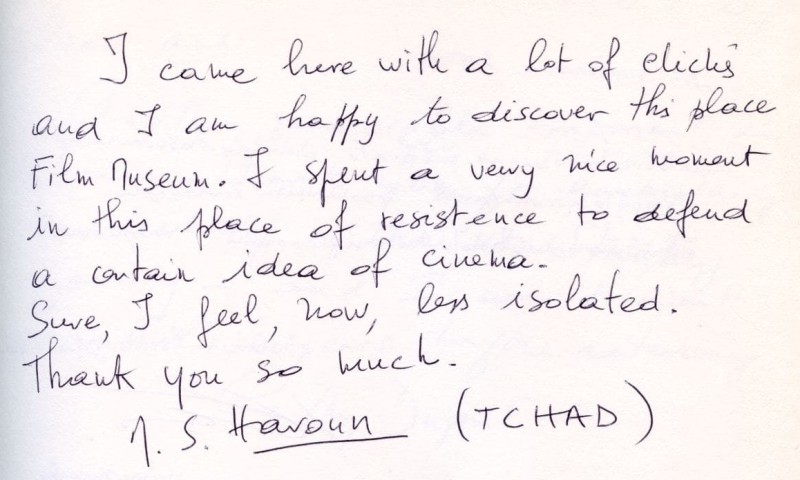 I came here with a lot of clichés
and I am happy to discover this place
Film Museum. I spent a very nice moment
in this place of resistence to defend
a contain idea of cinema.
Sure, I feel, now, less isolated.
Thank you so much.
M. S. Haroun (TCHAD)